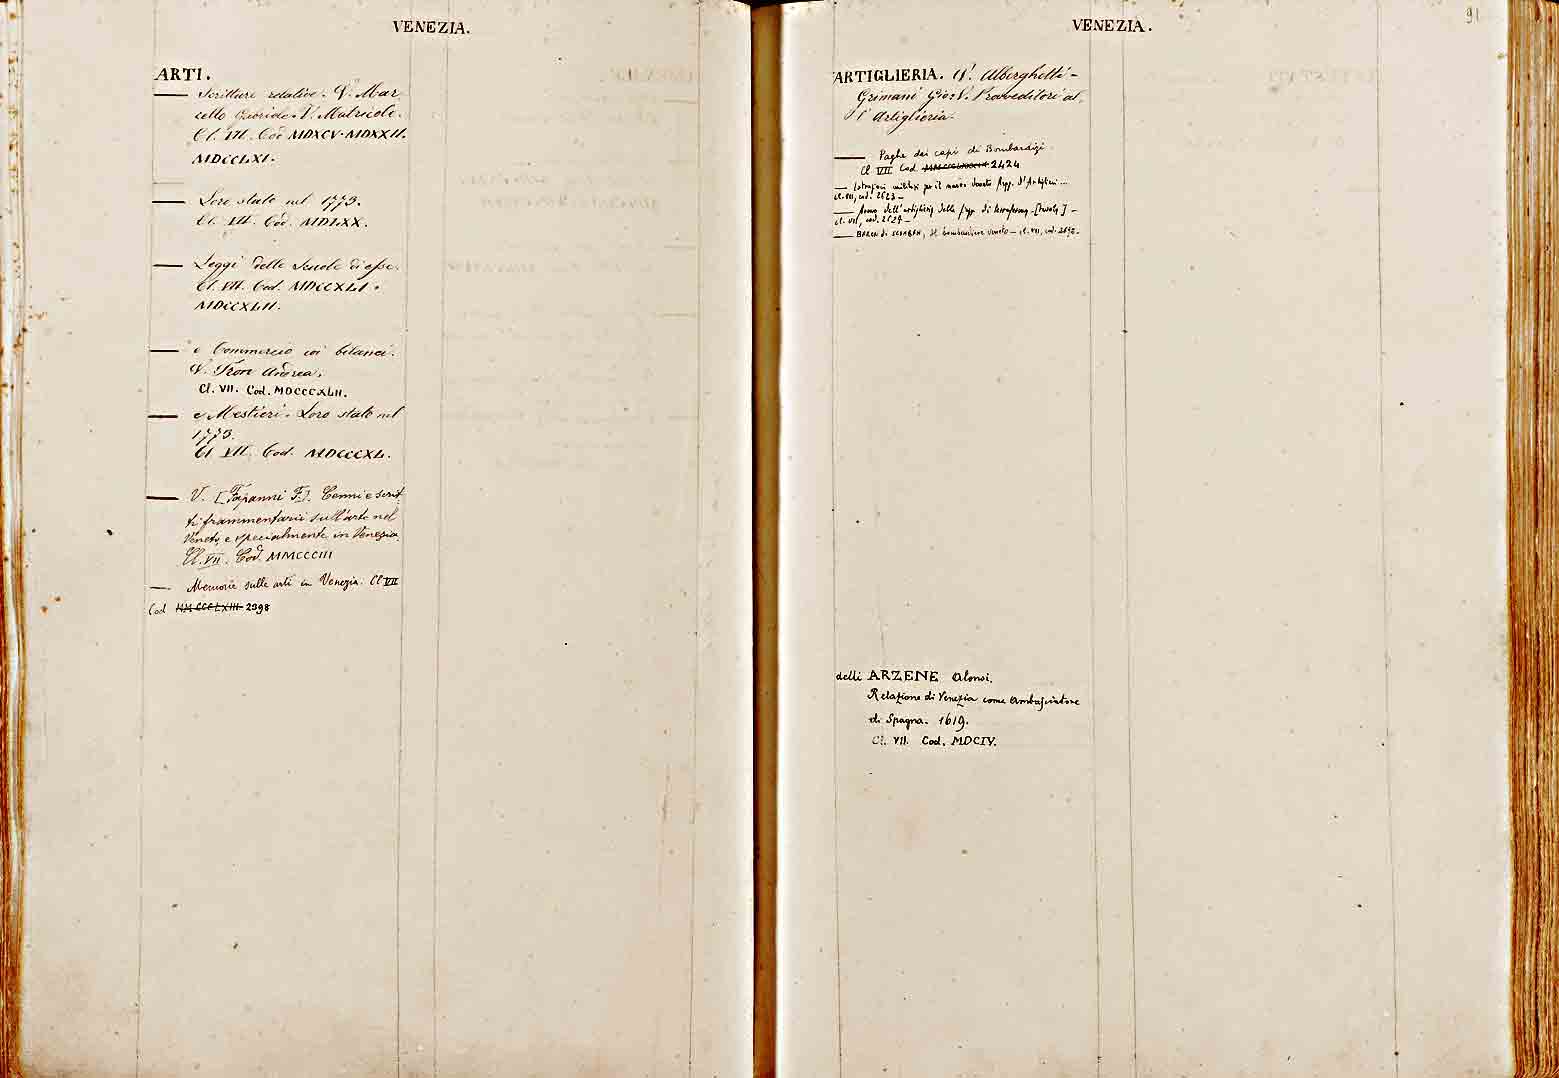 VENEZIA.
ARTI.
— Scritture relative. V. Mar-
cello Gioriolo. V. Matricole.
Cl. VII. Cod. MDXCV. MDXXII.
MDCCLXI.
— Loro stato nel 1773.
Cl. VII. Cod. MDLXX.
— Leggi delle Scuole di esse.
Cl. VII. Cod. MDCCXLI.
MDCCXLII.
— e Commercio coi bilanci.
V. Tron Andrea.
Cl. VII. Cod. MDCCCXLII.
— e Mestieri. Loro stato nel
1773.
Cl. VII. Cod. MDCCCXL.
— V. [Fapanni F.]. Cenni e scrit-
ti frammentarii sull'arte nel
Veneto, e specialmente in Venezia.
Cl. VII. Cod. MMCCCIII
— Memorie sulle arti in Venezia. Cl VII
Cod MMCCCLXIII 2398
VENEZIA.
91
ARTIGLIERIA. V. Alberghetti -
Grimani Gio: V. Provveditori al-
l'Artiglieria.
— Paghe dei capi di Bombardieri.
Cl VII Cod. 2424
— militari per il nuovo Veneto Regg. d'Artiglieria
cl. VII, cod. 2623 —
— dell'artiglieria delle
cl. VII, cod. 2627 —
— il bombardiere veneto — cl. VII, cod. 2690.
delli ARZENE Aloisi.
Relazione di Venezia come Ambasciatore
di Spagna. 1619.
Cl. VII. Cod. MDCIV.